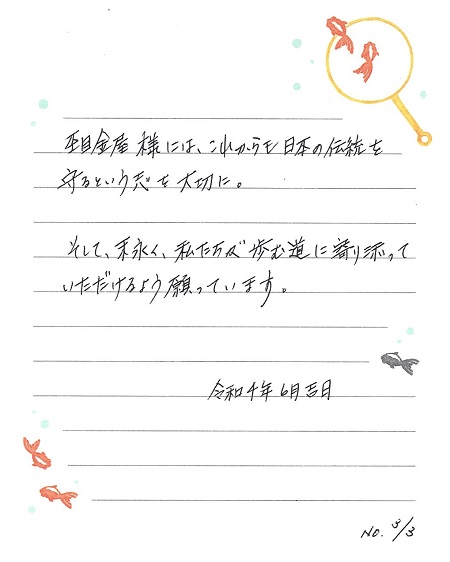 杢目金屋 様には、これからも日本の伝統を
守るという志を大切に。
そして、末永く、私たちが歩む道に寄り添って
いただけるよう願っています。
令和4年6月吉日
NO. 3/3